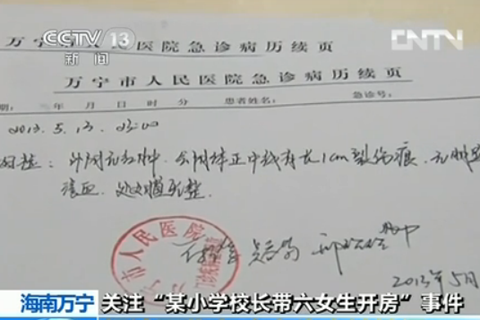 CCTV 13
新闻
CNTV
万宁市人民医院急诊病历续页
万宁市人民医院急诊病历续页
期: 年 月 日 时 分 患者姓名: 急诊号:
2013.5.13. 23:00
检: 外阴无红肿, 会阴体正中线有长1cm裂伤痕, 无明显
渗血, 处女膜完整.
市人民医院
2013年5月
海南万宁 关注“某小学校长带六女生开房”事件